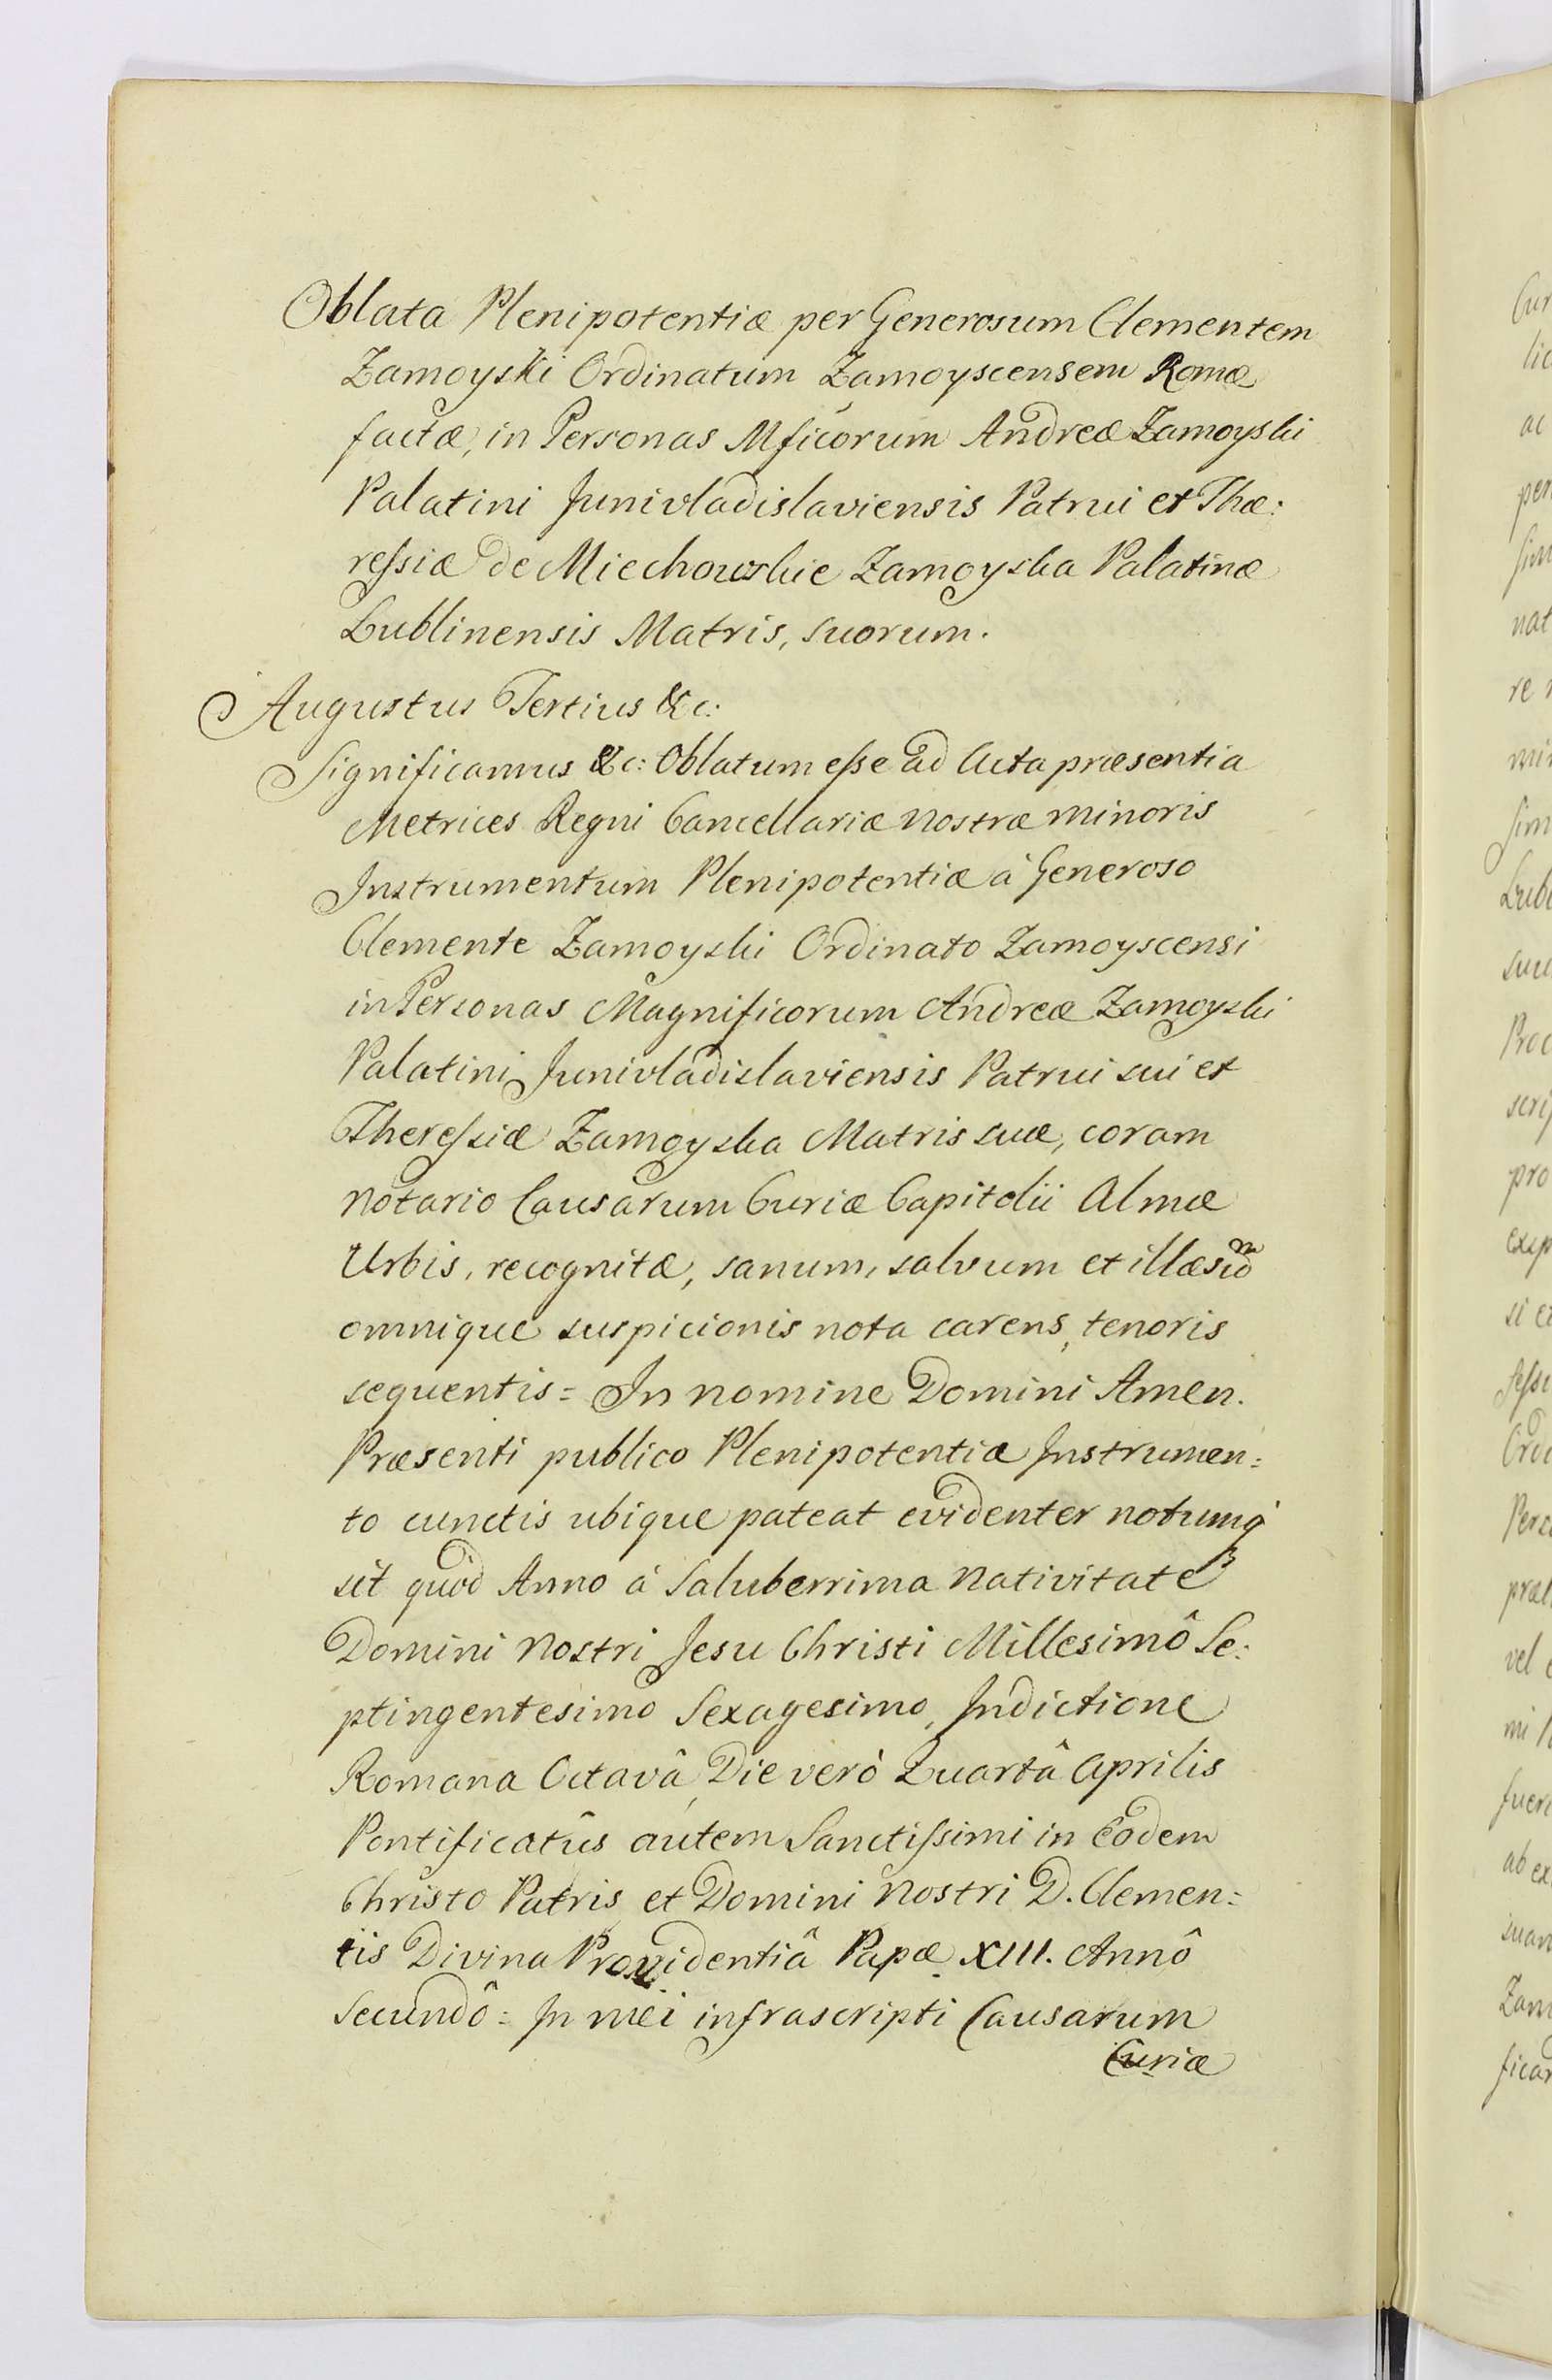 Oblata Plenipotentiæ per Generosum Clementem
Zamoyski Ordinatum Zamoyscensem Romæ
factæ, in Personas Mficorum Andreæ Zamoyski
Palatini Junivladislaviensis Patrui et Thæ:
ressiæ de Miechowskie Zamoyska Palatinæ
Lublinensis Matris, suorum.
Augustus Tertius &c:
Significamus &c: Oblatum esse ad Acta præsentia
Metrices Regni Cancellariæ nostræ minoris
Instrumentum Plenipotentiæ à Generoso
Clemente Zamoyski Ordinato Zamoyscensi
in Personas Magnificorum Andreæ Zamoyski
Palatini Junivladislaviensis Patrui sui et
Theressiæ Zamoyska Matris suæ, coram
Notario Causarum Curiæ Capitolii Almæ
Urbis, recognitæ, sanum, salvum et illæsũm
omnique suspicionis nota carens, tenoris
sequentis = In nomine Domini Amen.
Præsenti publico Plenipotentiæ Instrumen:
to cunctis ubique pateat evidenter notumq
sit quòd Anno á Saluberrima Nativitate
Domini Nostri Jesu Christi Millesimô Se:
ptingentesimo Sexagesimo, Indictione
Romana Octavâ, Die verò Quartâ Aprilis
Pontificatûs autem Sanctissimi in Eodem
Christo Patris et Domini Nostri D. Clemen:
tis Divina Providentiâ Papæ XIII. Annô
Secundô = In mei infrascripti Causarum
Curiæ